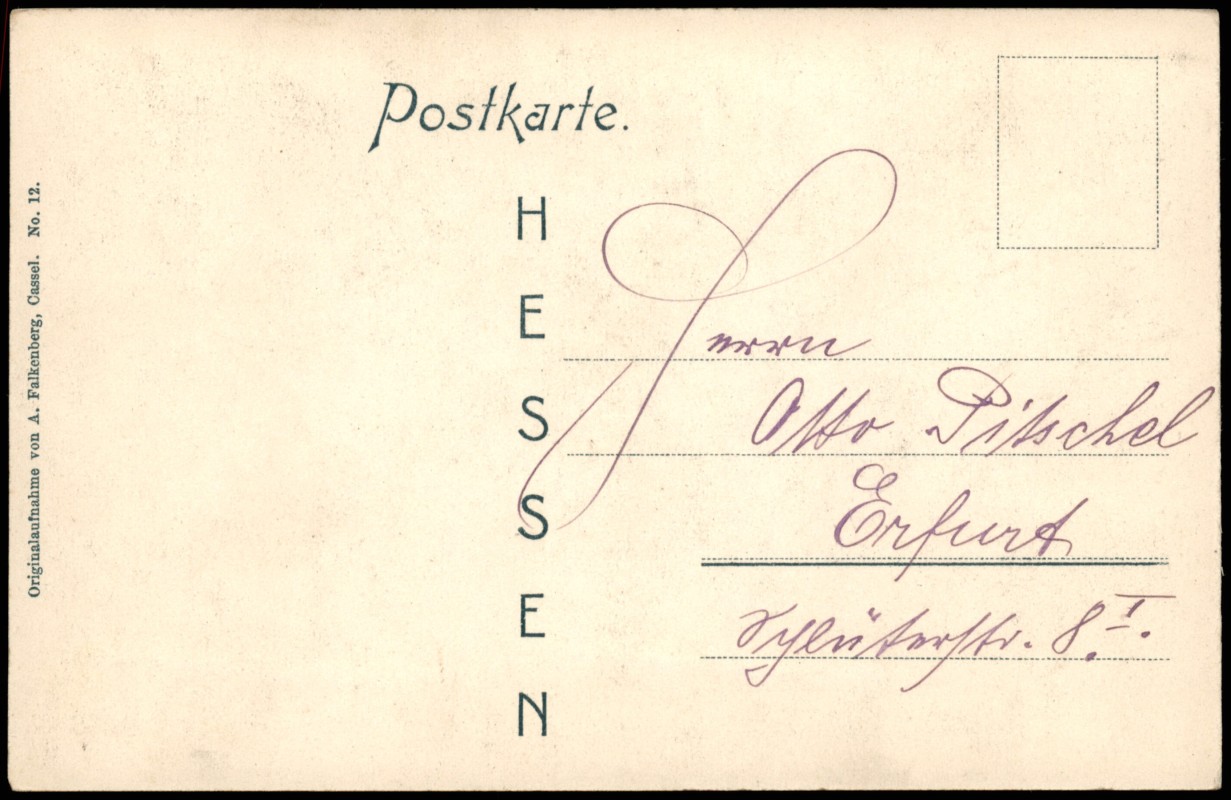 Postkarte.
HESSEN
Herrn
Otto Pitschel
Erfurt
Schlüterstr. 8.I.
Originalaufnahme von A. Falkenberg, Cassel. No. 12.